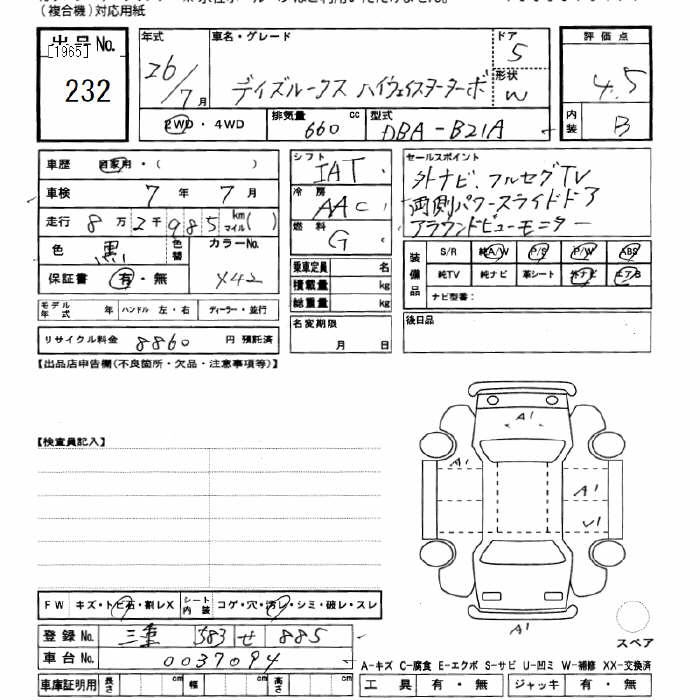 （複合機）対応用紙
出品No. 年式 車名・グレード ドア 評価点
[1965] 26/7月 デイズルークス ハイウェイスターターボ 5 4.5
232 形状 W
2WD・4WD 排気量 660 cc 型式 DBA-B21A 内装 B
車歴 自家用・( ) シフト IAT セールスポイント
車検 7年 7月 冷房 AAC 外ナビ、フルセグTV
走行 8万2千985 km マイル( ) 燃料 G 両側パワースライドドア
アラウンドビューモニター
色 黒 色替 カラーNo. X42
保証書 有・無
乗車定員 名
積載量 kg
総重量 kg
装備品 S/R 純A/W P/S P/W ABS
純TV 純ナビ 革シート 外ナビ エアB
ナビ型番：
モデル年式 年 ハンドル 左・右 ディーラー・並行
名変期限 月 日
後日品
リサイクル料金 8860 円 預託済
【出品店申告欄(不良箇所・欠品・注意事項等)】
【検査員記入】
A1
A1
A1
U1
A1
FW キズ・トビ石・割レX シート内装 コゲ・穴・汚レ・シミ・破レ・スレ
登録No. 三重 583 せ 885
車台No. 0037094
スペア
A-キズ C-腐食 E-エクボ S-サビ U-凹ミ W-補修 XX-交換済
車庫証明用 長さ cm 幅 cm 高さ cm
工具 有・無 ジャッキ 有・無